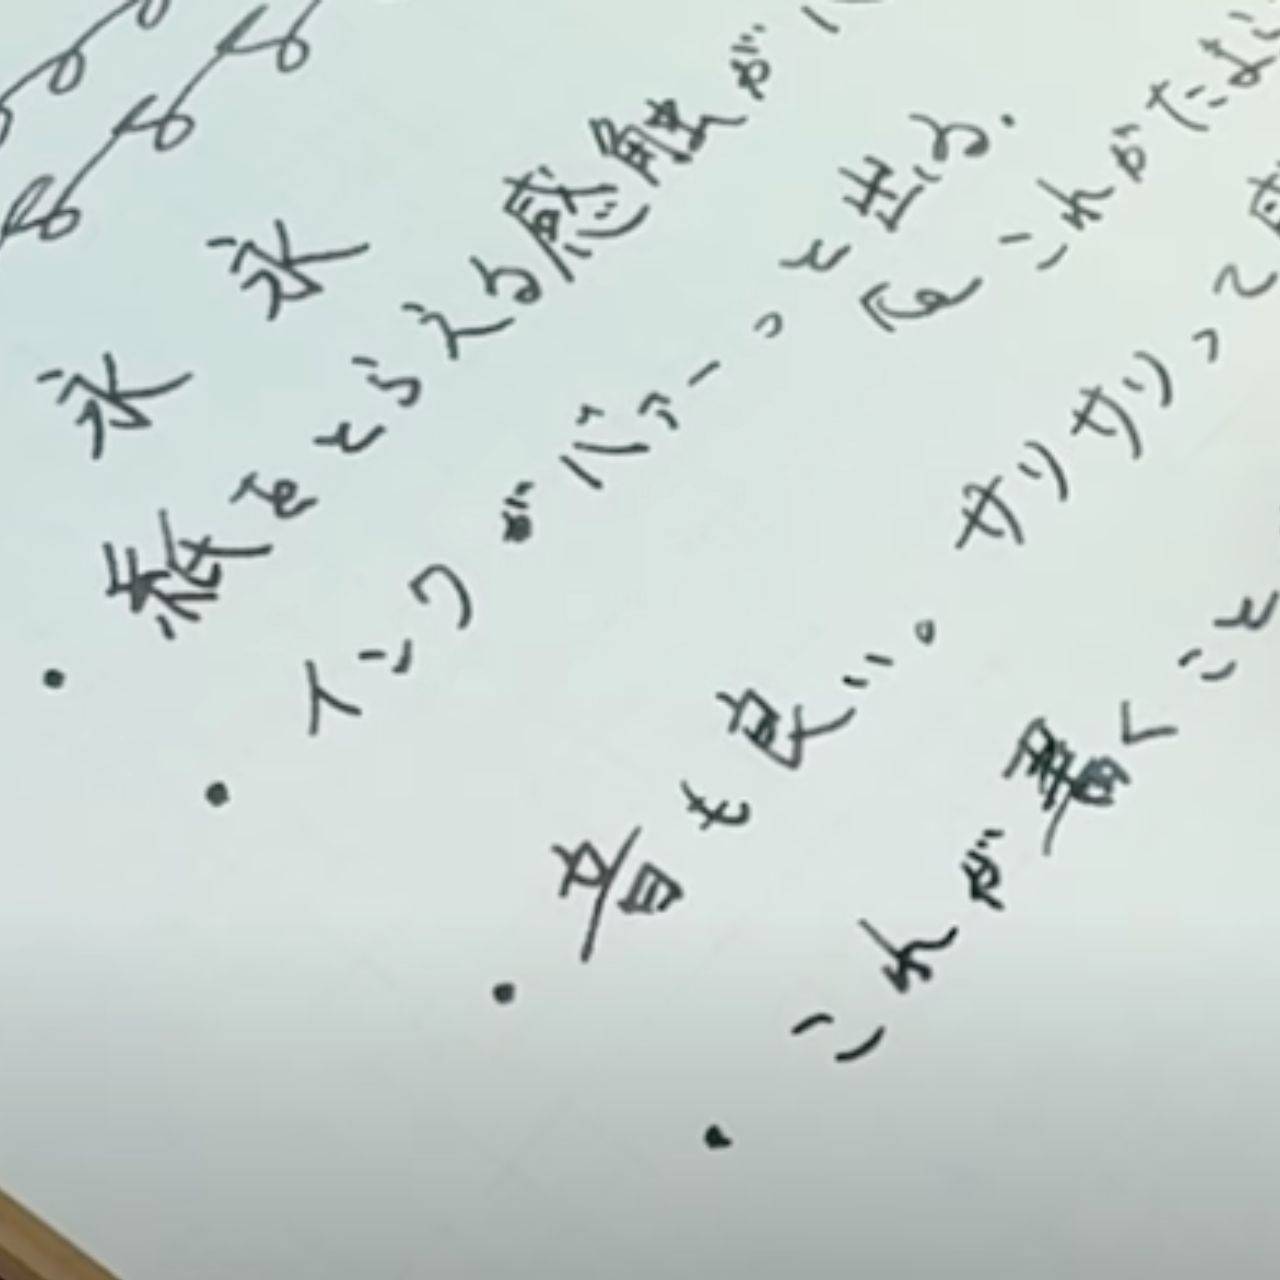 永 永
・紙をとらえる感触が
・インクがバァーっと出る.
これがたまら
・音も良い。サリサリって
・これが書くこと